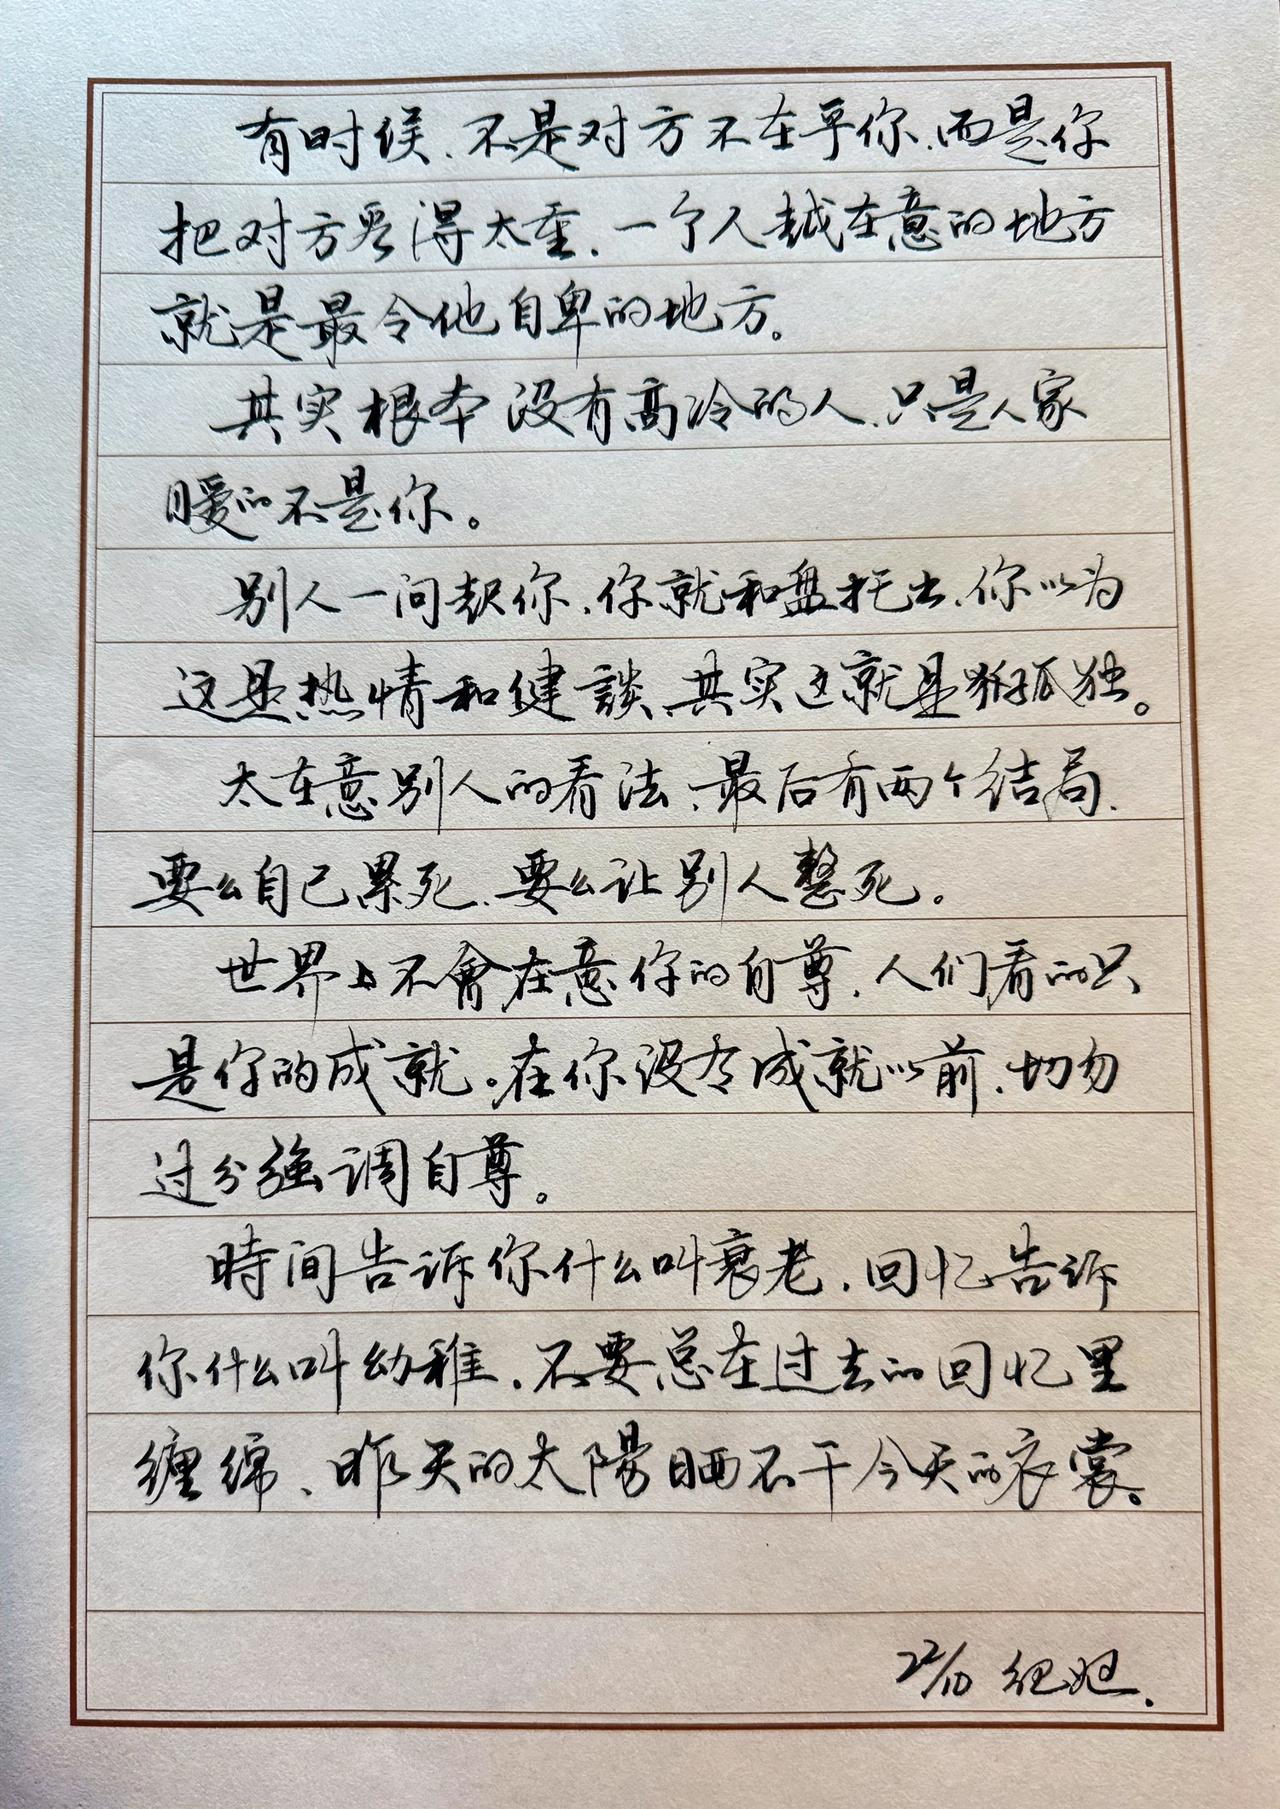 有时候、不是对方不在乎你、而是你
把对方看得太重、一个人越在意的地方
就是最令他自卑的地方。
其实根本没有高冷的人、只是人家
暖的不是你。
别人一问起你、你就和盘托出、你以为
这是热情和健談、其实这就是孤独。
太在意别人的看法、最后有两个结局、
要么自己累死、要么让别人整死。
世界上不會在意你的自尊、人们看的只
是你的成就。在你没有成就以前、切勿
过分強调自尊。
時间告诉你什么叫衰老、回忆告诉
你什么叫幼稚、不要总在过去的回忆里
缠绵、昨天的太陽晒不干今天的衣裳。
22/10